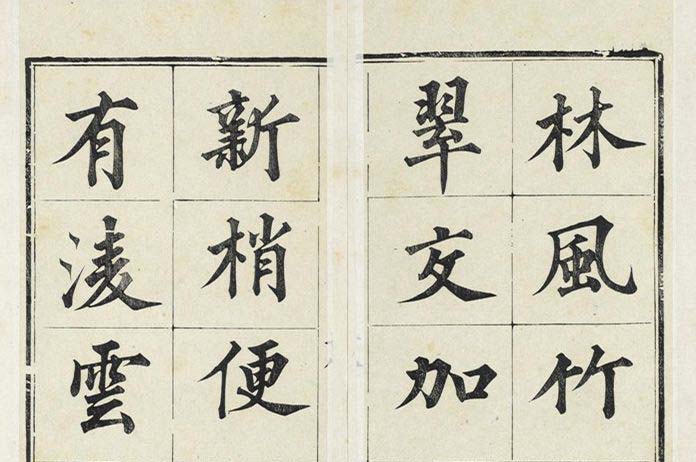 林風竹
翠交加
新梢便
有凌雲